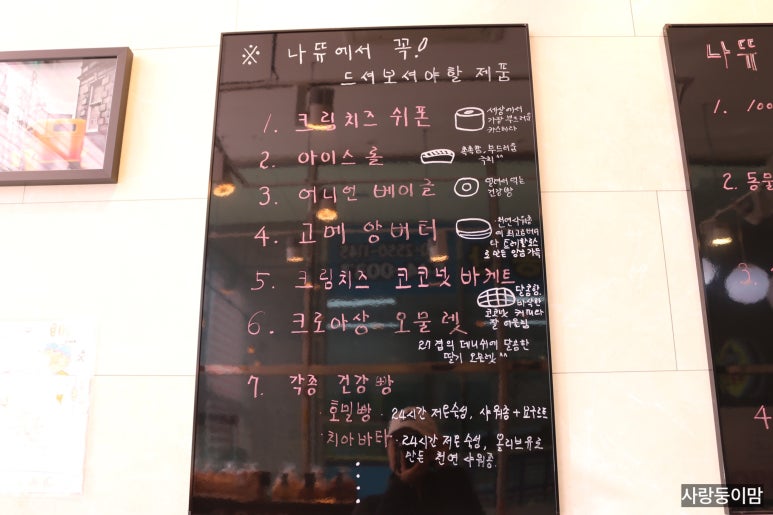 ※ 나뜌에서 꼭!
드셔보셔야할 제품
1. 크림치즈 쉬폰
세상에서
가장 부드러운
카스테라
2. 아이스 롤
촉촉함, 부드러움
극치^^
3. 어니언 베이글
건강빵
4. 고메 앙버터
천연사워종
에 최고급버터
만든 앙금 가득
5. 크림치즈 코코넛 바게트
달콤함,
바삭한
코코넛
잘 어울림
6. 크로아상 오믈렛
27겹의 데니쉬에 달콤한
딸기 오믈렛^^
7. 각종 건강빵
· 호밀빵 · 24시간 저온숙성, 사워종+요구르트
· 치아바타 · 24시간 저온숙성, 올리브유로
만든 천연 사워종.
나뜌
1. 100
2. 동물
3.
4
사랑둥이맘